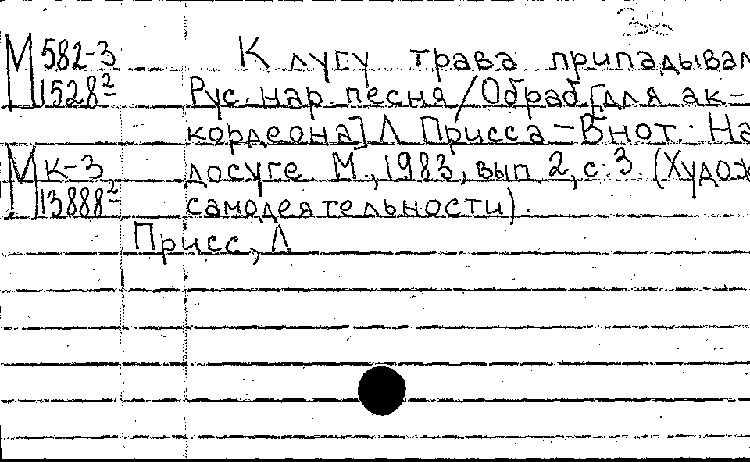 38
М 582-3 К лугу трава припадывал
1528² Рус. нар. песня / Обраб. [для ак-
кордеона] Л. Присса - В нот.: На
М К-3 досуге. М., 1983, вып. 2, с. 3. (Худож
13888² самодеятельности).
Присс, Л